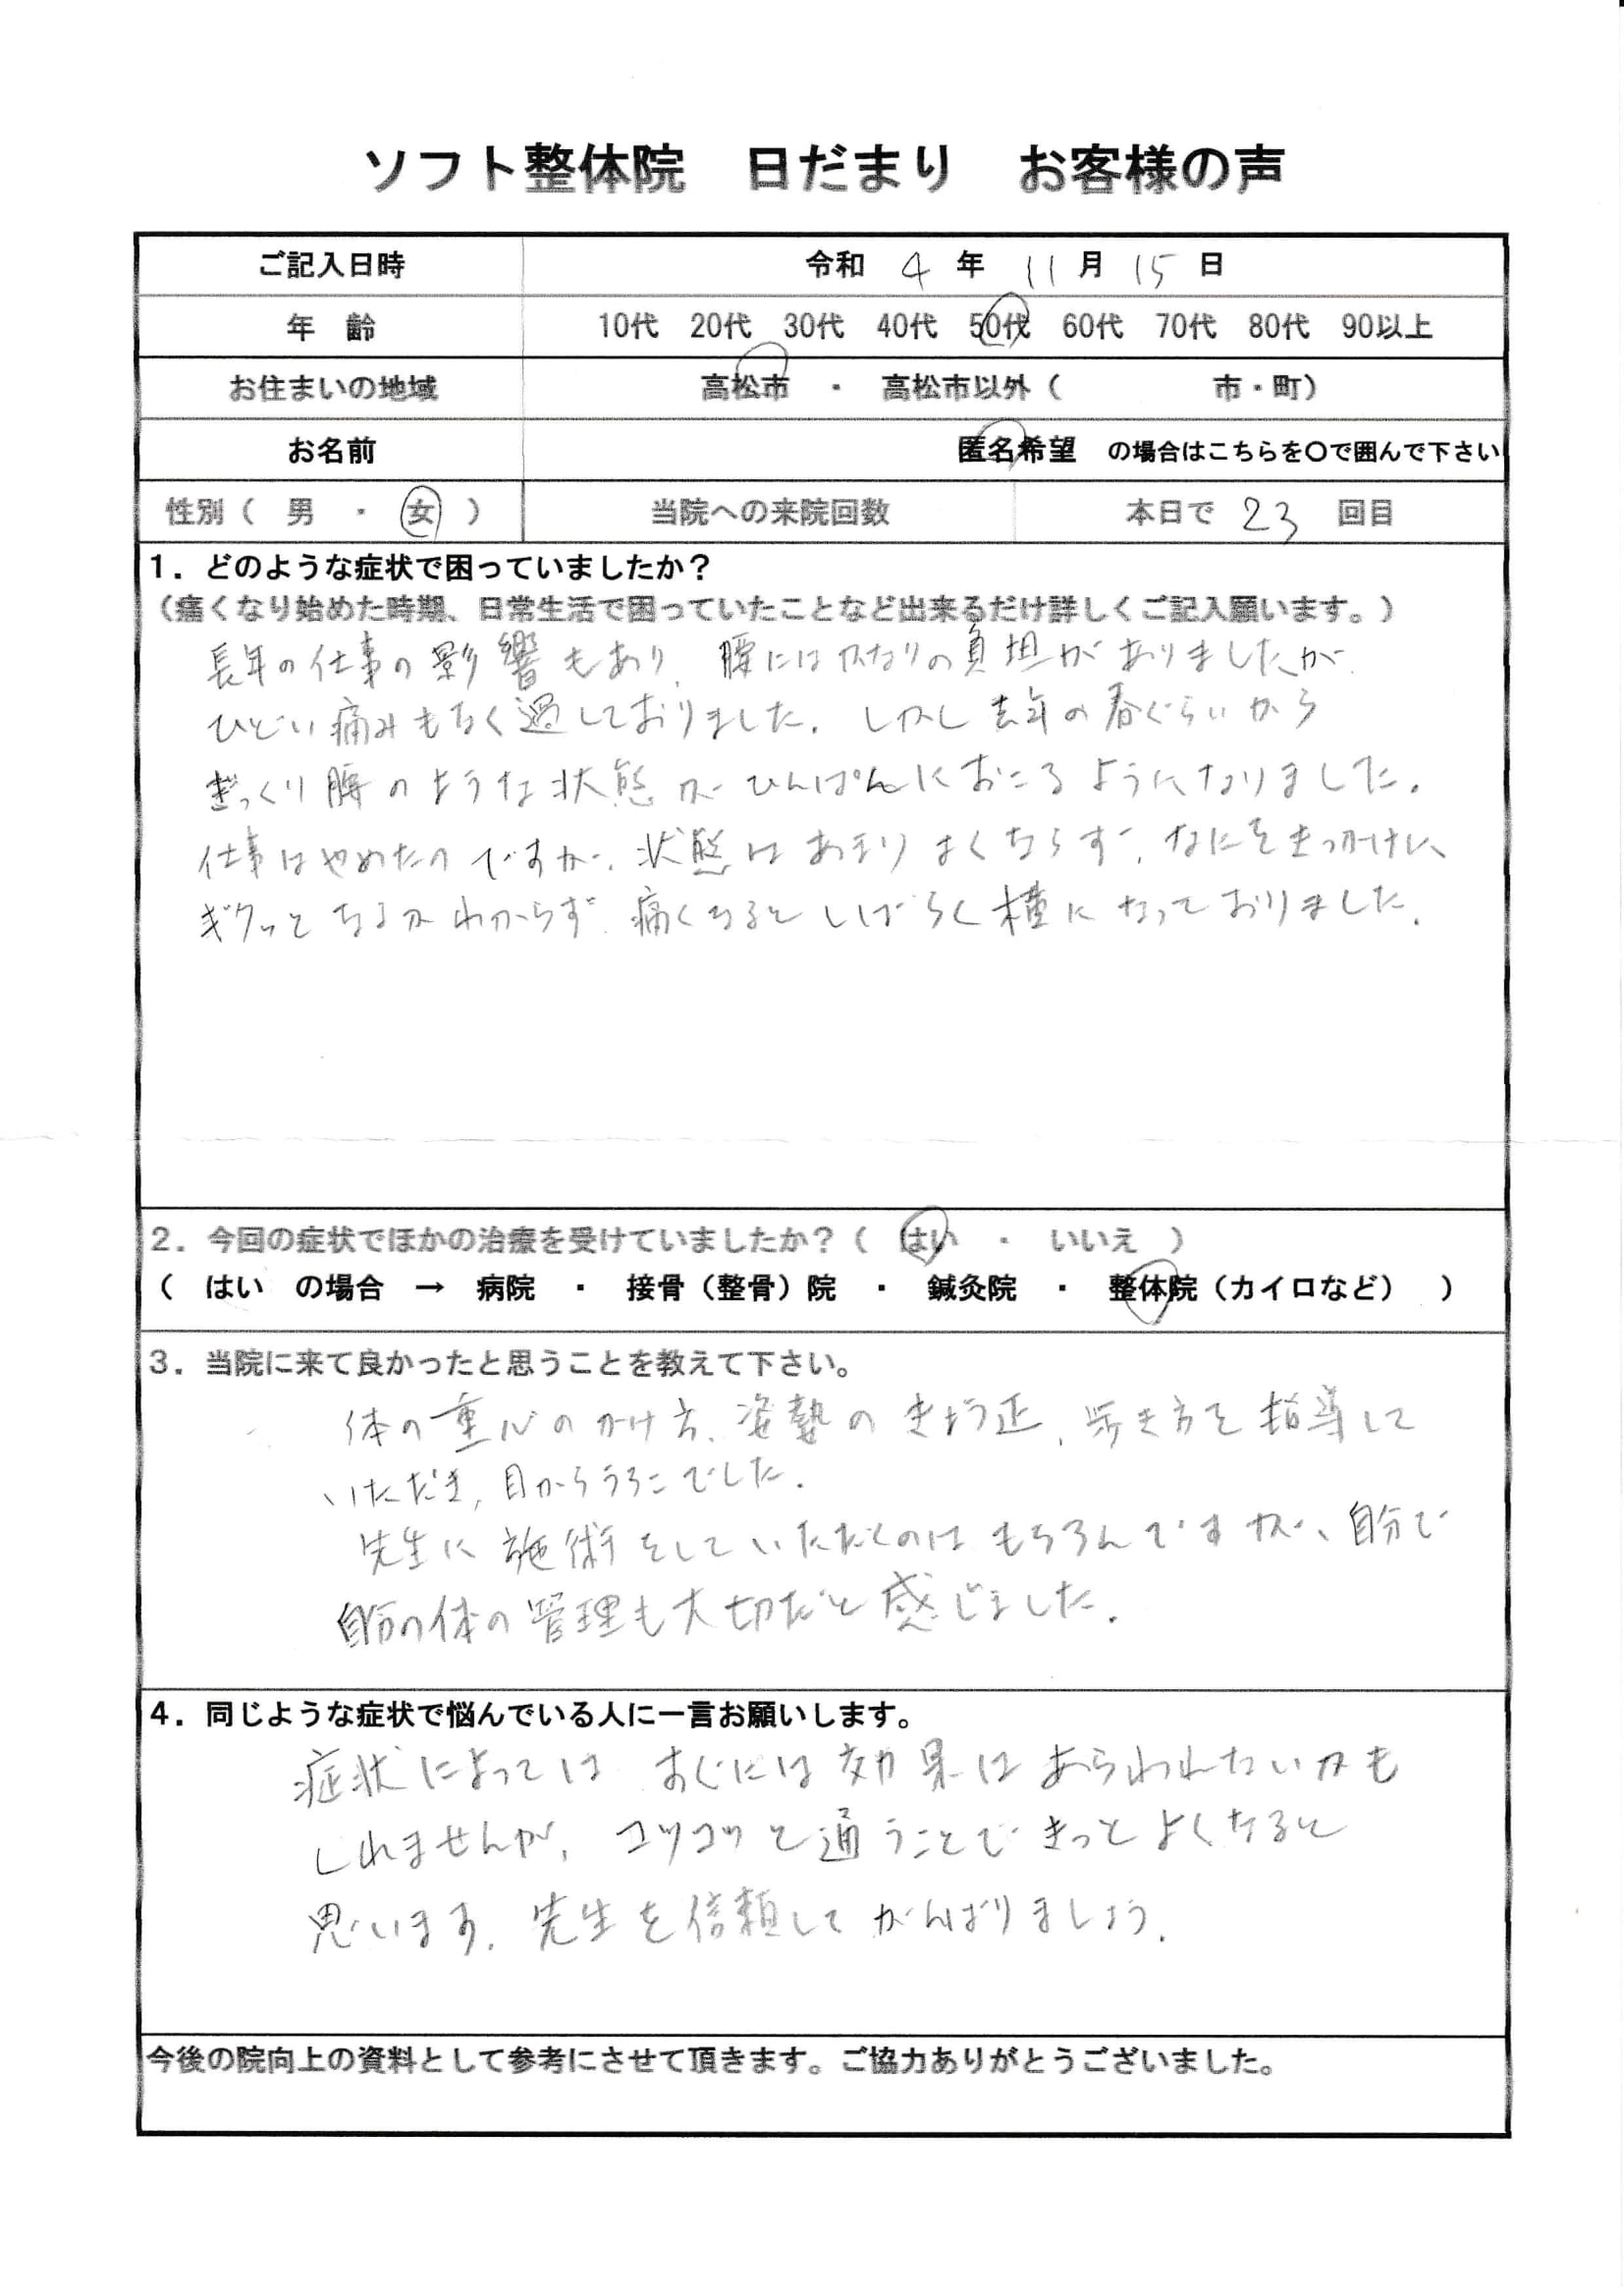 ソフト整体院 日だまり お客様の声
ご記入日時 令和 4 年 11 月 15 日
年 齢 10代 20代 30代 40代 50代 60代 70代 80代 90以上
お住まいの地域 高松市 ・ 高松市以外（ 市・町）
お名前 匿名希望 の場合はこちらを〇で囲んで下さい
性別（ 男 ・ 女 ） 当院への来院回数 本日で 23 回目
1．どのような症状で困っていましたか？
（痛くなり始めた時期、日常生活で困っていたことなど出来るだけ詳しくご記入願います。）
長年の仕事の影響もあり、腰にはかなりの負担がありましたが
ひどい痛みもなく過しておりました。しかし去年の春ぐらいから
ぎっくり腰のような状態がひんぱんにおこるようになりました。
仕事はやめたのですが、状態はあまりよくならず、なにをきっかけに
ギクッとなるかわからず 痛くなるとしばらく横になっておりました。
2．今回の症状でほかの治療を受けていましたか？（ はい ・ いいえ ）
（ はい の場合 → 病院 ・ 接骨（整骨）院 ・ 鍼灸院 ・ 整体院（カイロなど） ）
3．当院に来て良かったと思うことを教えて下さい。
体の重心のかけ方、姿勢のきょう正、歩き方を指導して
いただき、目からうろこでした。
先生に施術をしていただくのはもちろんですが、自分で
自分の体の管理も大切だと感じました。
4．同じような症状で悩んでいる人に一言お願いします。
症状によってはすぐには効果はあらわれないかも
しれませんが、コツコツと通うことできっとよくなると
思います。先生を信頼してがんばりましょう。
今後の院向上の資料として参考にさせて頂きます。ご協力ありがとうございました。